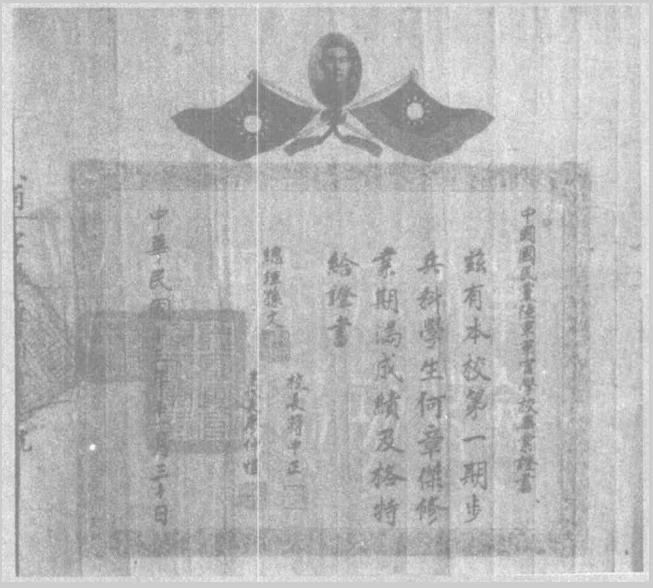 中國國民黨陸軍軍官學校畢業證書
茲有本校第一期步
兵科學生何章傑修
業期滿成績及格特
給證書
總理孫文
校長蔣中正
黨代表廖仲愷
中華民國十三年十一月三十日